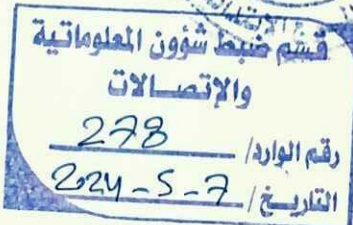 قسم ضبط شؤون المعلوماتية
والإتصالات
رقم الوارد/ 278
التاريخ/ 2024-5-7